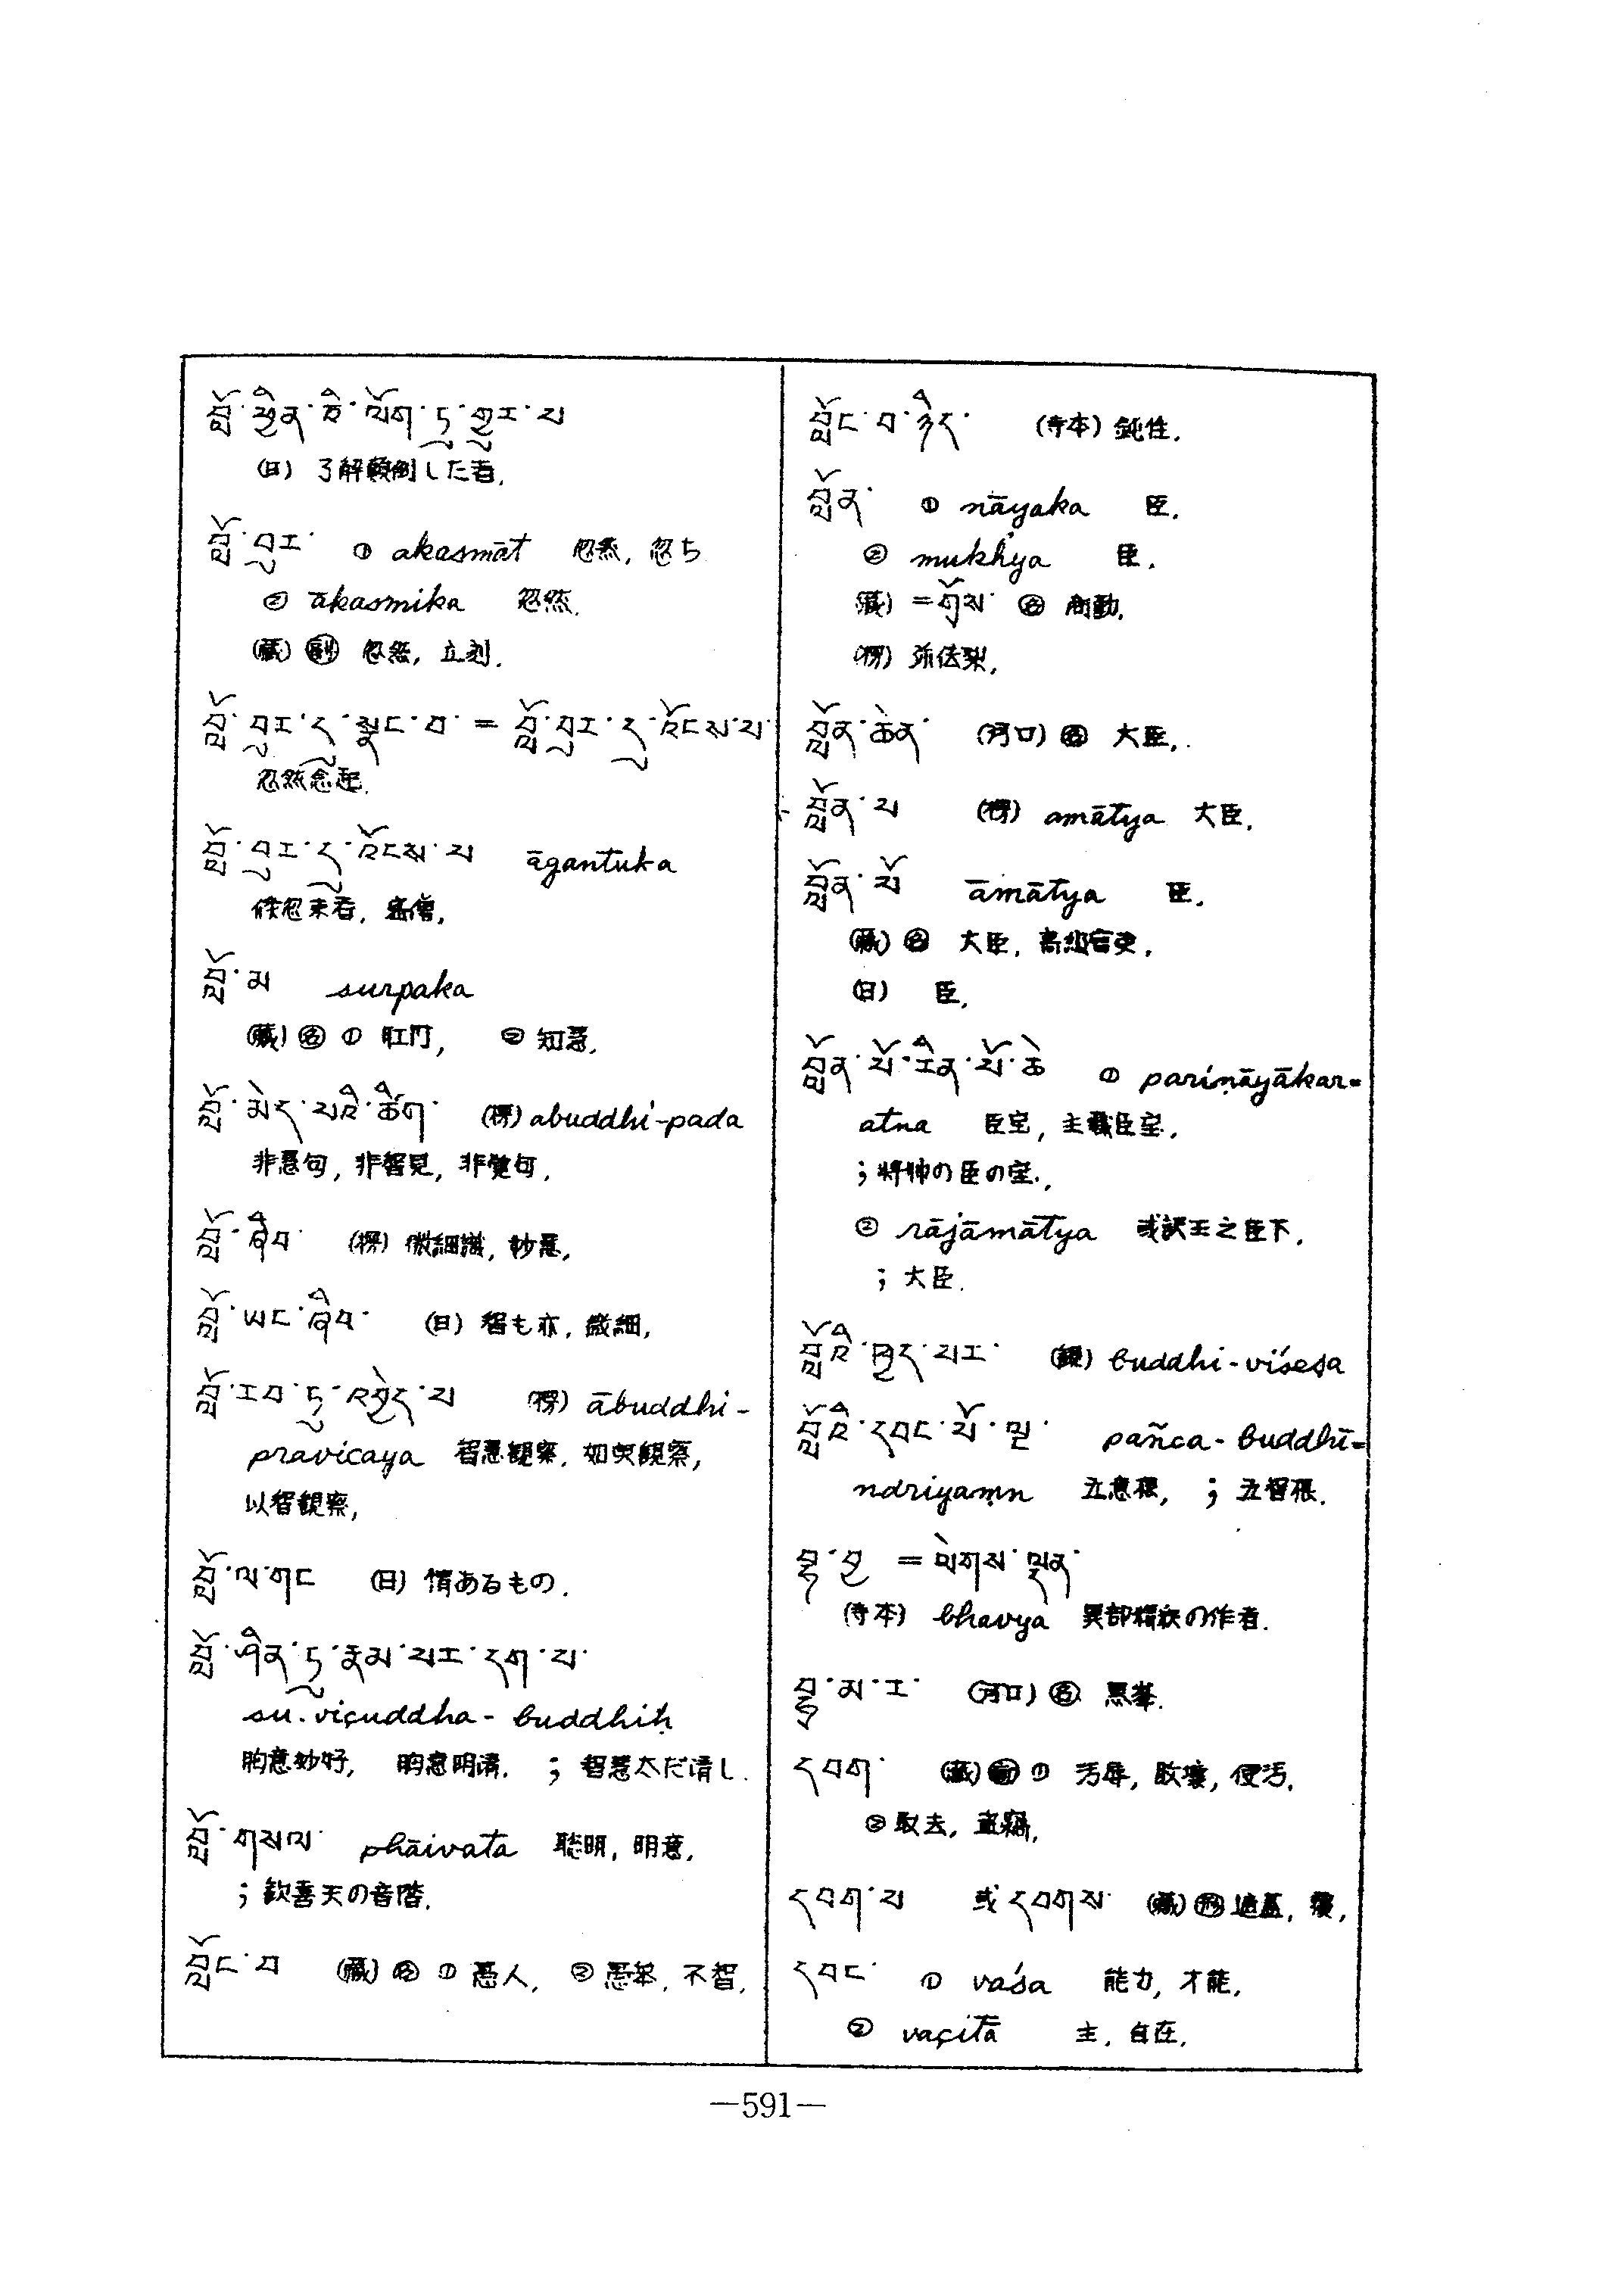 བློ་ཕྱིན་ཅི་ལོག་ཏུ་གྱུར་པ
(日) 了解顛倒した者.
བློ་བུར་ ① akasmāt 忽然, 忽ち
② ākasmika 忽然.
(藏) ㊓ 忽然, 立刻.
བློ་བུར་དུ་སྣང་བ་ = བློ་བུར་དུ་འོངས་པ་
忽然念起.
བློ་བུར་དུ་འོངས་པ āgantuka
倏忽来者, 客僧,
བློ་མ surpaka
(藏) ㊔ ① 肛門, ② 知慧,
བློ་མེད་པའི་ཚིག་ (楞) abuddhi-pada
非慧句, 非智見, 非覚句,
བློ་ཞིབ་ (楞) 微細識, 妙慧,
བློ་ཡང་ཞིབ་ (日) 智も亦, 微細,
བློ་རབ་ཏུ་འབྱེད་པ (楞) ābuddhi-
pravicaya 智慧観察, 如実観察,
以智観察,
བློ་ལ་གང (日) 情あるもの.
བློ་ཤིན་ཏུ་རྣམ་པར་དག་པ་
su.viçuddha-buddhiḥ
胸意妙好, 胸意明清. ; 智慧太だ清し.
བློ་གསལ་ phāivata 聡明, 明意,
; 歓喜天の音階.
བློང་བ (藏) ㊔ ① 愚人, ② 愚笨, 不智,
བློང་བ་ཉིད་ (寺本) 鈍性.
བློན་ ① nāyaka 臣.
② mukhya 臣.
(藏) = གྲོས་ ㊔ 商勤,
(楞) 弥佉梨,
བློན་ཆེན་ (河口) ㊔ 大臣,
བློན་པ (楞) amātya 大臣,
བློན་པོ āmātya 臣,
(藏) ㊔ 大臣, 高級官吏,
(日) 臣,
བློན་པོ་རིན་པོ་ཆེ ① pariṇāyākar=
atna 臣宝, 主藏臣宝,
; 将帥の臣の宝,
② rājāmātya 或訳王之臣下,
; 大臣.
བློའི་ཁྱད་པར་ buddhi-viśeṣa
བློའི་དབང་པོ་ལྔ་ pañca-buddhī=
ndriyaṃn 五意根, ; 五智根.
= ལེགས་ལྡན་
(寺本) bhavya 異部精釈の作者.
(河口) ㊔ 黒峯.
དབག་ (藏) ① 汚辱, 敗壊, 便汚,
② 取去, 盗竊,
དབག་པ 或 དབགས་ (藏) 遮蓋, 覆,
དབང་ ① vaśa 能力, 才能,
② vaçitā 主, 自在,
—591—